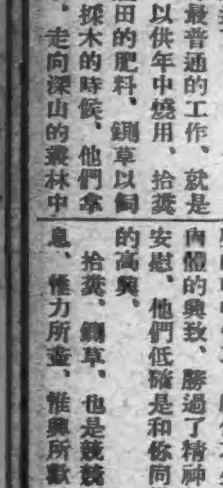 最普通的工作、就是
以供年中燒用、拾糞
田的肥料、鍘草以飼
採木的時候、他們拿
走向深山的叢林中
內體的興致、勝過了精神
安慰、他們低確是和你同
的高興、
拾糞、鍘草、也是兢兢
息、惟力所盡、惟興所歎